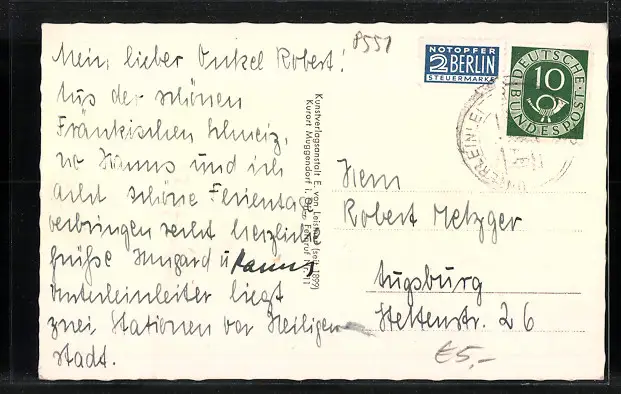 8551
Mein lieber Onkel Robert!
Aus der schönen
Fränkischen Schweiz,
wo Hanns und ich
acht schöne Ferientage
verbringen recht herzliche
Grüße Irmgard u. Hanns
Unterleinleiter liegt
zwei Stationen vor Heiligen-
stadt.
Kunstverlagsanstalt E. von Leistner (seit 1899)
Kurort Muggendorf i. Ofr. Fernruf Nr. 11
NOTOPFER
2 BERLIN
STEUERMARKE
DEUTSCHE
BUNDESPOST
10
UNTERLEINLEI
Herrn
Robert Metzger
Augsburg
Stettenstr. 26
€5,-